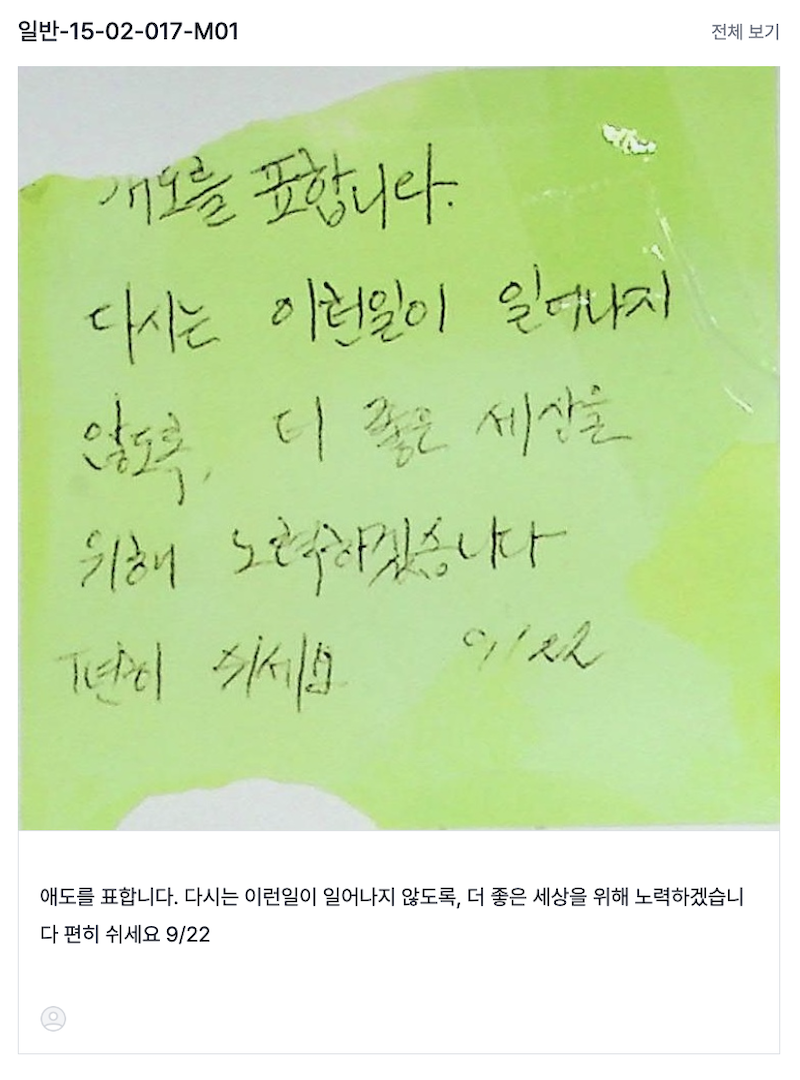 일반-15-02-017-M01
전체 보기
애도를 표합니다.
다시는 이런일이 일어나지
않도록, 더 좋은 세상을
위해 노력하겠습니다
편히 쉬세요 9/22
애도를 표합니다. 다시는 이런일이 일어나지 않도록, 더 좋은 세상을 위해 노력하겠습니
다 편히 쉬세요 9/22